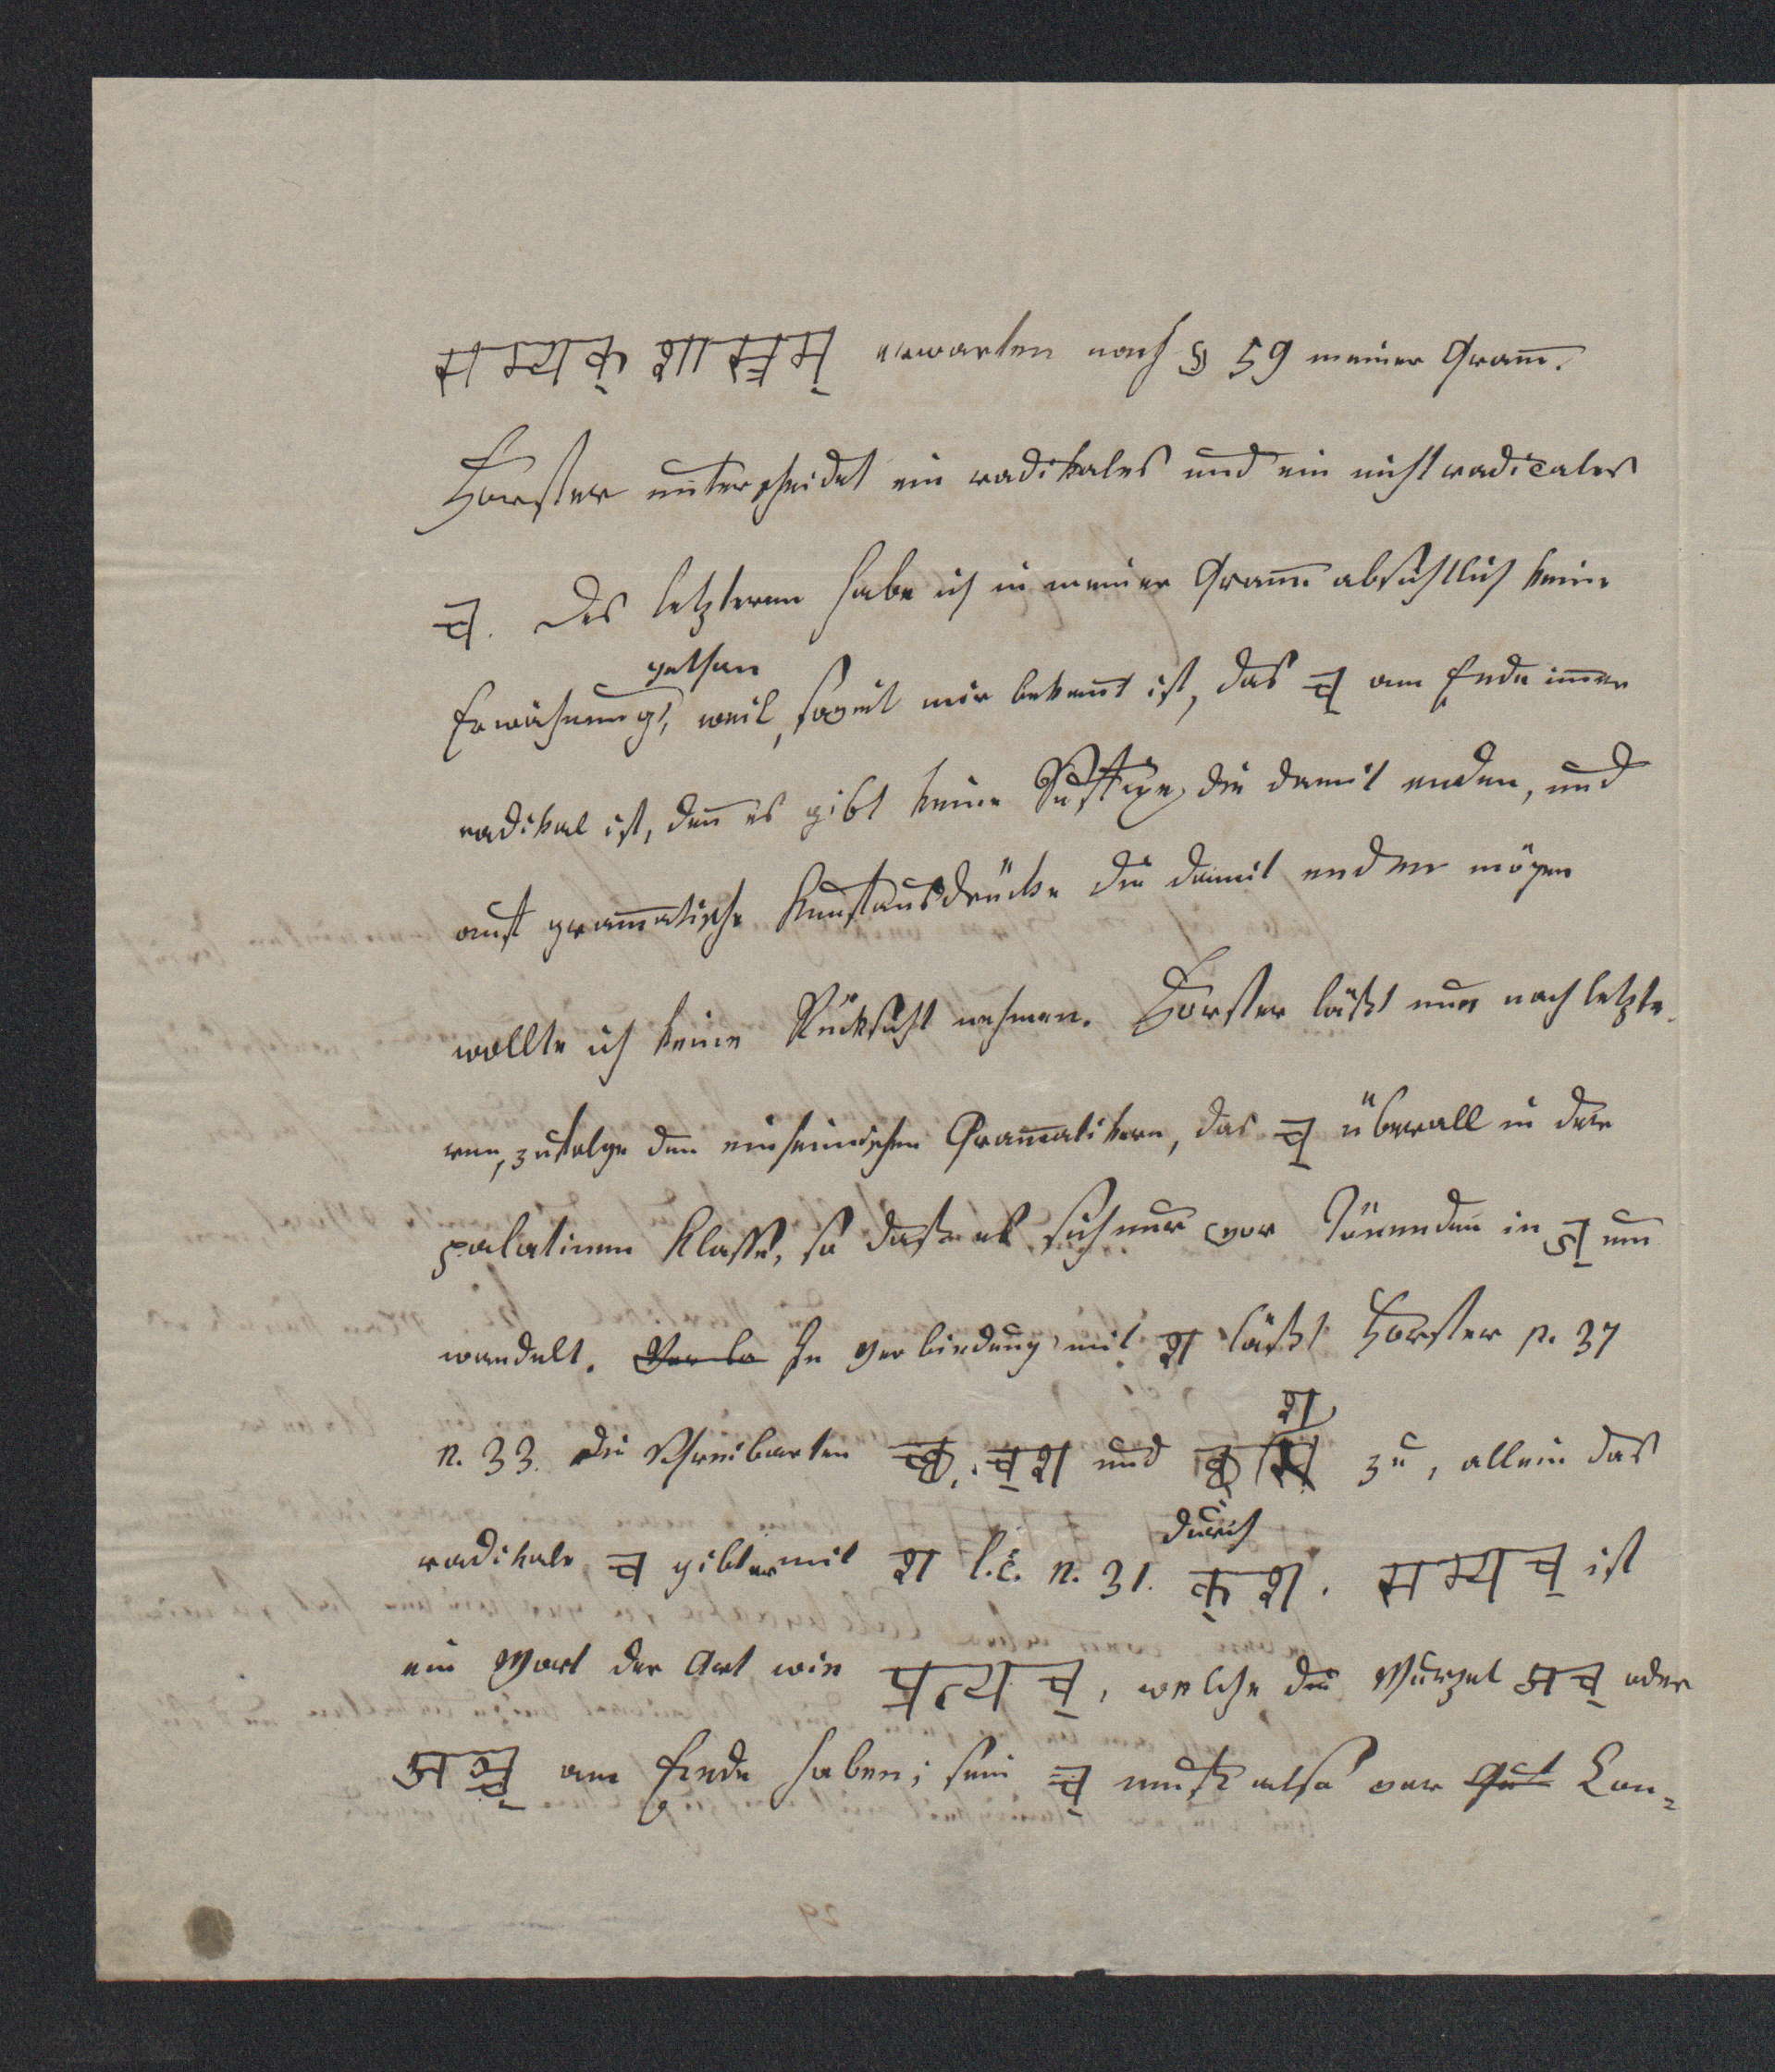 सम्यक् शास्त्रम् erwarten nach § 59 meiner Gram̄.
Forster unterscheidet ein radikales und ein nicht radicales
च्. Des letzteren habe ich in meiner Gram̄. absichtlich keine
gethan
Erwähnung, weil, soviel mir bekan̄t ist, das च् am Ende im̄er
radikal ist, den̄ es gibt keine Suffixe die damit enden, und
auf gram̄atische Kunstausdrücke die damit enden mögen
wollte ich keine Rücksicht nehmen. Forster läßt nun nach letzte-
ren, zufolge den einheimischen Gram̄atikern, das च् überall in der
palatinen Klasse, so daß es sich nur vor Tönenden in ज् um
wandelt. Ver la In Verbindung mit श läßt Forster p. 37
श
n. 33. die Schreibarten च्छ, च् श und क् zu, allein das
durch
radikale च gibt er mit श l. c. n. 31. क् श. सम्यच् ist
ein Wort der Art wie प्रत्यच्, welche die Wurzel अच् oder
अञ्च् am Ende haben; sein च् muß also vor Gut Con-